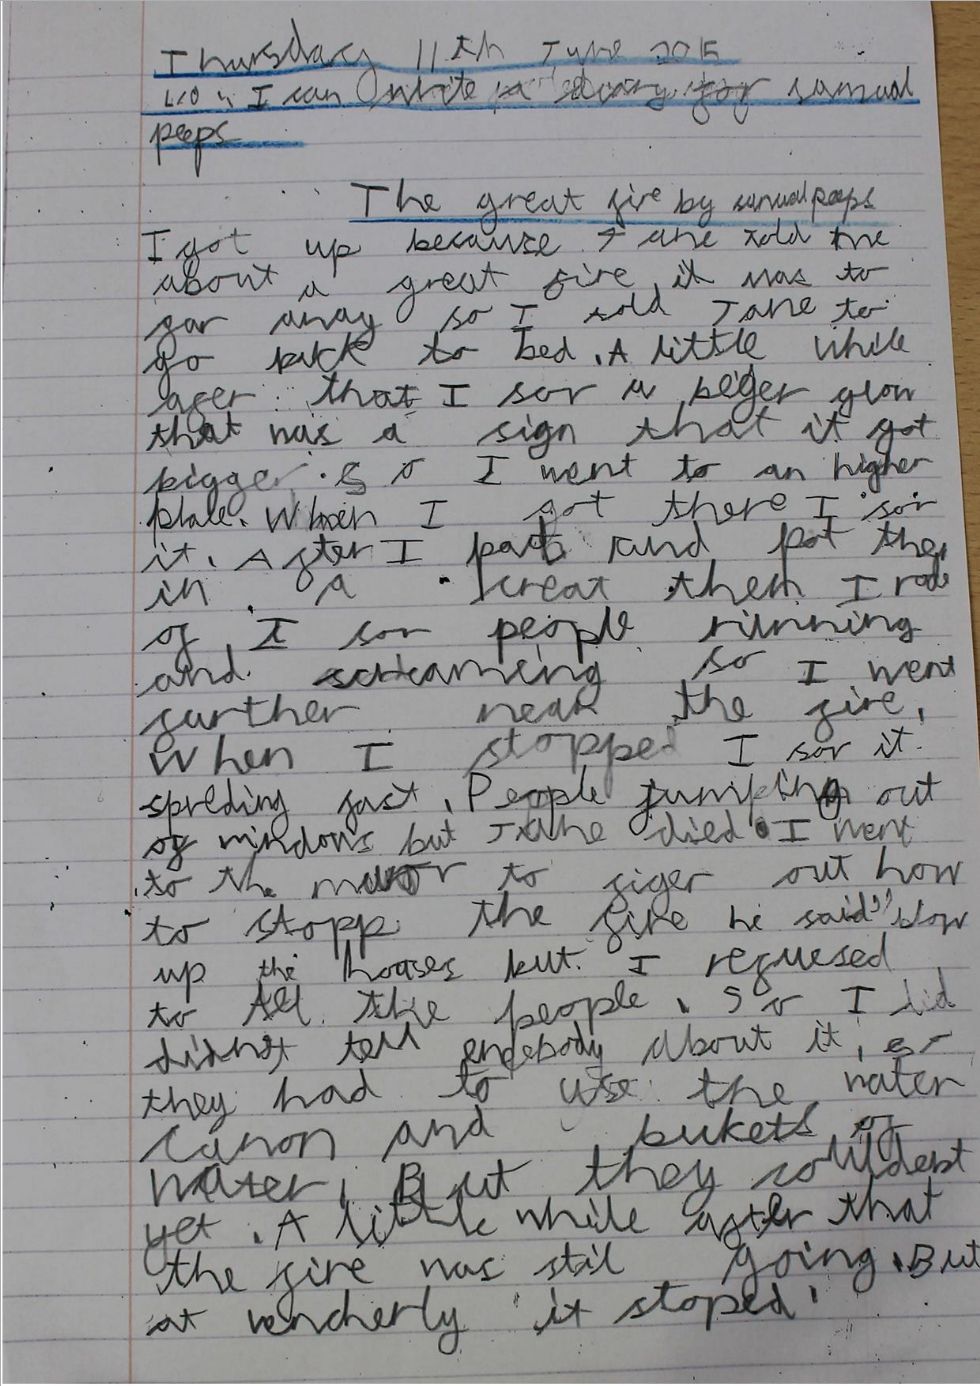 Thursday 11th June 2015
L.O : I can write a story for samual
peeps
The great fire by samual peeps
I got up because Jane told me
about a great fire, it was to
far away so I told Jane to
go back to bed. A little while
after that I sor a beger glow
that was a sign that it got
bigger. So I went to an higher
plase. When I got there I sor
it. After I and pot them
in a them I rode
of, I sor people running
and screaming so I went
further near the fire.
When I stopped I sor it
spreding fast. People jumping out
of windows but Jane died. I went
to the to figer out how
to stopp the fire he said "blow
up the houses but I refused
to All the people. So I did
didnot tell enebody about it, so
they had to use the water
canon and bukets of
water. But they couldent
yet. A little while after that
the fire was stil going. But
at vencherly it stoped.